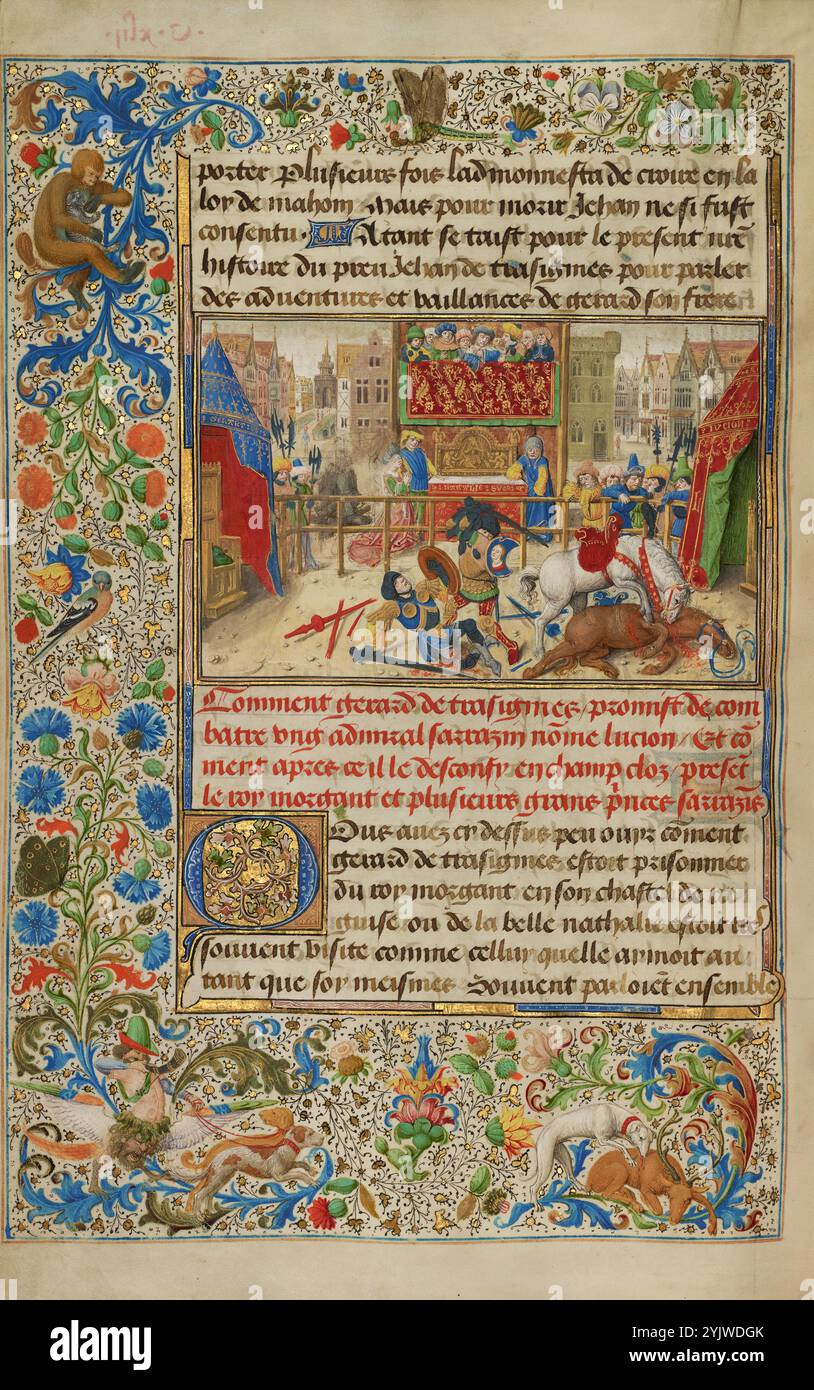 porter Plusieurs fois ladmonnesta de croire en la
loy de mahom Mais pour morir Jehan ne si fust
consentu. Atant se taist pour le present nr̄e
histoire du preu Jehan de trasignies pour parler
des aduentures et vaillances de gerard son frere
LUCION
Comment gerard de trasignies / promist de com
batre vng admiral sarrazin nōme lucion / Et cō
ment apres ce il le desconfy en champ cloz / presēt
le roy morgant et plusieurs grans p̄nces sarrazīs
Ous auez cy dessus peu ouyr cōment
gerard de trasignies estoit prisonnier
du roy morgant en son chastel de
guise ou de la belle nathalie estoit
souuent visite comme celluy quelle aymoit au
tant que soy meismes Souuent parloiēt ensemble
alamy
alamy
Image ID: 2YJWDGK
www.alamy.com